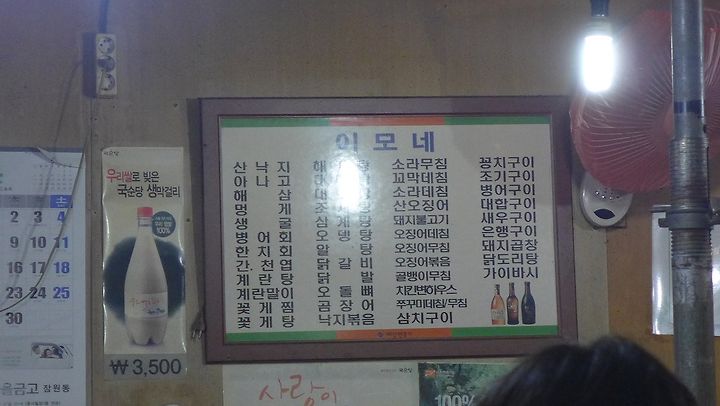 우리쌀로 빚은
국순당 생막걸리
100%
₩3,500
이모네
산낙지 소라무침 꽁치구이
아나고 꼬막데침 조기구이
해삼 소라데침 병어구이
멍게 산오징어 대합구이
생굴 삼계탕 돼지불고기 새우구이
병어회 오뎅탕 오징어데침 은행구이
한치회 알탕 오징어무침 돼지곱창
간.천엽 닭갈비 오징어볶음 닭도리탕
계란탕 닭발 골뱅이무침 가이바시
계란말이 오돌뼈 치킨변하우스
꽃게찜 곰장어 쭈꾸미데침/무침
꽃게탕 낙지볶음 삼치구이
金 土
2 3 4
9 10 11
16 17 18
23 24 25
30
을금고 잠원동
사랑이
100%